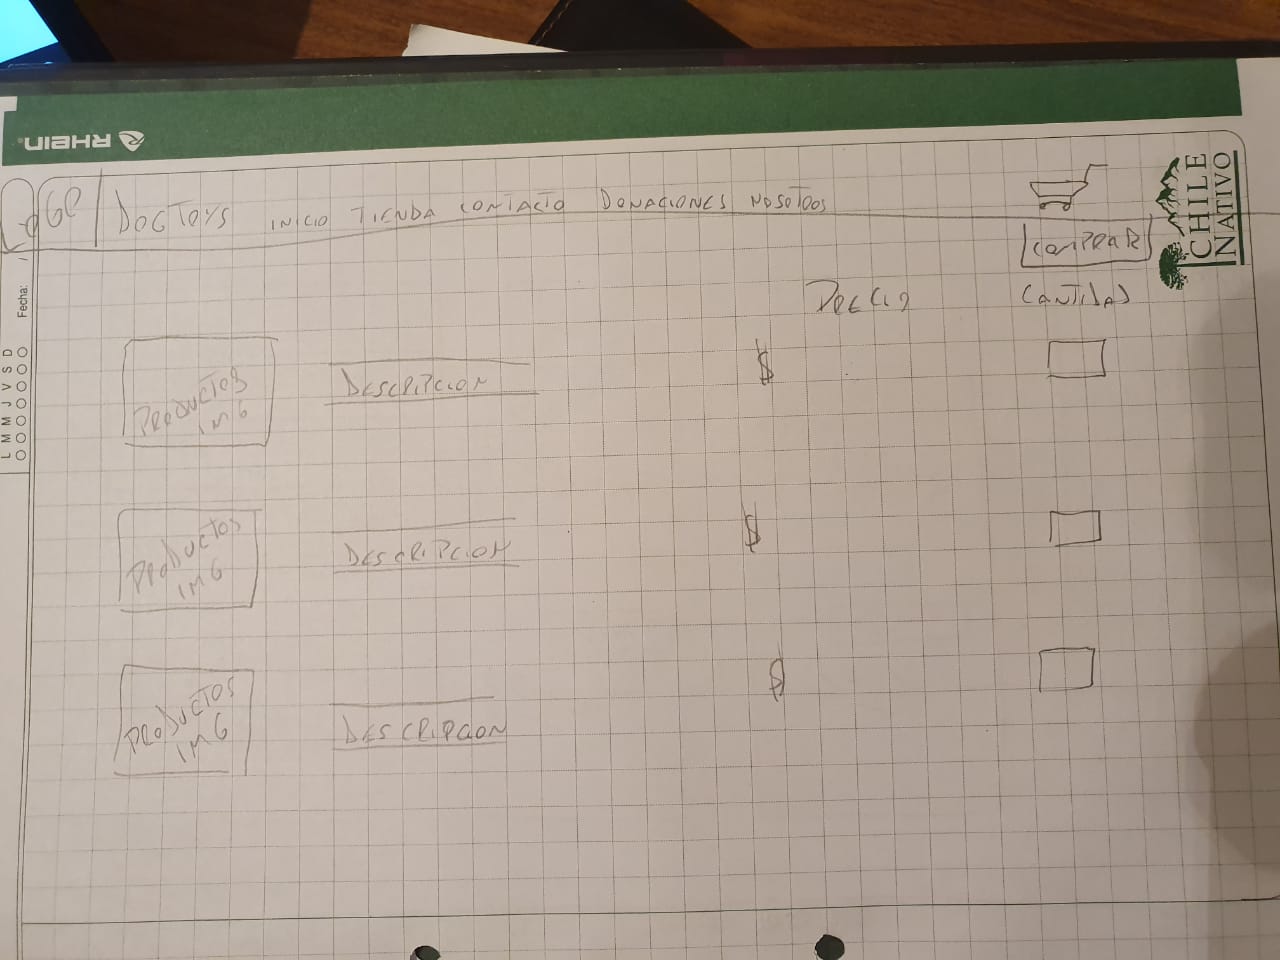 RHEIN
CHILE
NATIVO
Fecha:
L M M J V S D
LOGO DOGTOYS INICIO TIENDA CONTACTO DONACIONES NOSOTROS
COMPRAR
PRECIO CANTIDAD
PRODUCTOS IMG
DESCRIPCION $
PRODUCTOS IMG
DESCRIPCION $
PRODUCTOS IMG
DESCRIPCION $